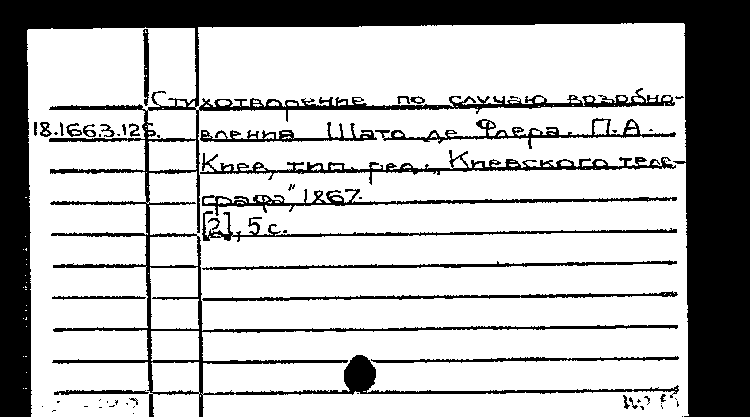 Стихотворение по случаю возобно-
18.166.3.126. вления Шато де Флера. П.А.
Киев, тип. ред. „Киевского теле-
графа", 1867.
[2], 5 с.